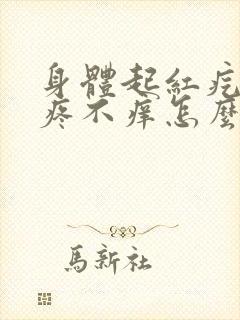 身體起紅疙
疼不痒怎麼
馬新社